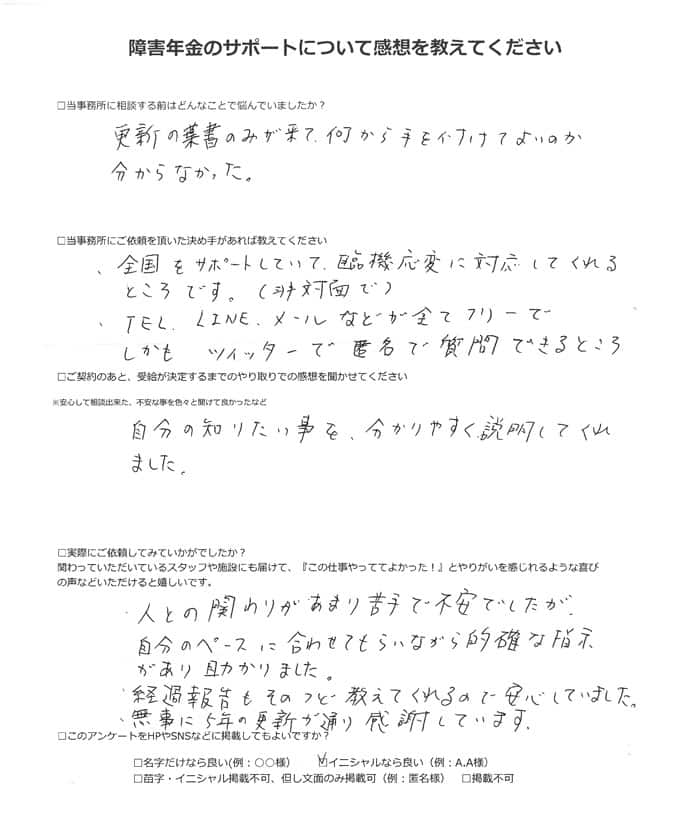 障害年金のサポートについて感想を教えてください
□当事務所に相談する前はどんなことで悩んでいましたか？
更新の葉書のみが来て、何から手を付けてよいのか
分からなかった。
□当事務所にご依頼を頂いた決め手があれば教えてください
、全国をサポートしていて、臨機応変に対応してくれる
ところです。（非対面で）
、TEL、LINE、メールなどが全てフリーで
しかも ツイッターで匿名で質問できるところ
□ご契約のあと、受給が決定するまでのやり取りでの感想を聞かせてください
※安心して相談出来た、不安な事を色々と聞けて良かったなど
自分の知りたい事を、分かりやすく説明してくれ
ました。
□実際にご依頼してみていかがでしたか？
関わっていただいているスタッフや施設にも届けて、『この仕事やっててよかった！』とやりがいを感じれるような喜び
の声などいただけると嬉しいです。
・人との関わりがあまり苦手で不安でしたが、
自分のペースに合わせてもらいながら的確な指示
があり助かりました。
・経過報告もそのつど教えてくれるので安心していました。
・無事に5年の更新が通り感謝しています。
□このアンケートをHPやSNSなどに掲載してもよいですか？
□名字だけなら良い(例：○○様） ☑イニシャルなら良い（例：A,A様）
□苗字・イニシャル掲載不可、但し文面のみ掲載可（例：匿名様） □掲載不可